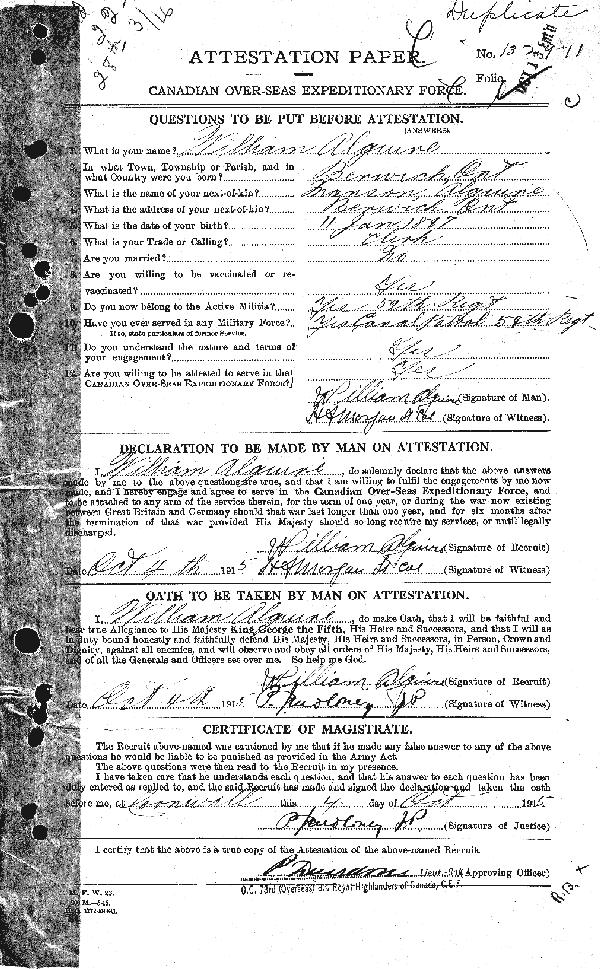 Duplicate
ATTESTATION PAPER.
No.
Folio.
CANADIAN OVER-SEAS EXPEDITIONARY FORCE.
QUESTIONS TO BE PUT BEFORE ATTESTATION.
(ANSWERS)
What is your name? William Alguire
In what Town, Township or Parish, and in
what Country were you born? Berwick, Ont
What is the name of your next-of-kin? Alguire
What is the address of your next-of-kin? Berwick Ont
What is the date of your birth? 11 Jan 1897
What is your Trade or Calling? Clerk
Are you married? No
Are you willing to be vaccinated or re-
vaccinated? Yes
Do you now belong to the Active Militia? Yes 59th Regt
Have you ever served in any Military Force? Yes Canal Patrol 59th Regt
If so, state particulars of former Service.
Do you understand the nature and terms of
your engagement? Yes
Are you willing to be attested to serve in the
CANADIAN OVER-SEAS EXPEDITIONARY FORCE? Yes
William Alguire (Signature of Man).
H S Morgan (Signature of Witness).
DECLARATION TO BE MADE BY MAN ON ATTESTATION.
I, William Alguire, do solemnly declare that the above answers
made by me to the above questions are true, and that I am willing to fulfil the engagements by me now
made, and I hereby engage and agree to serve in the Canadian Over-Seas Expeditionary Force, and
to be attached to any arm of the service therein, for the term of one year, or during the war now existing
between Great Britain and Germany should that war last longer than one year, and for six months after
the termination of that war provided His Majesty should so long require my services, or until legally
discharged.
William Alguire (Signature of Recruit)
Date Oct 4th 1915 H S Morgan (Signature of Witness)
OATH TO BE TAKEN BY MAN ON ATTESTATION.
I, William Alguire, do make Oath, that I will be faithful and
bear true Allegiance to His Majesty King George the Fifth, His Heirs and Successors, and that I will as
in duty bound honestly and faithfully defend His Majesty, His Heirs and Successors, in Person, Crown and
Dignity, against all enemies, and will observe and obey all orders of His Majesty, His Heirs and Successors,
and of all the Generals and Officers set over me. So help me God.
William Alguire (Signature of Recruit)
Date Oct 4th 1915 JP (Signature of Witness)
CERTIFICATE OF MAGISTRATE.
The Recruit above-named was cautioned by me that if he made any false answer to any of the above
questions he would be liable to be punished as provided in the Army Act.
The above questions were then read to the Recruit in my presence.
I have taken care that he understands each question, and that his answer to each question has been
duly entered as replied to, and the said Recruit has made and signed the declaration and taken the oath
before me, at Cornwall this 4 day of Oct 1915
JP (Signature of Justice)
I certify that the above is a true copy of the Attestation of the above-named Recruit.
Lieut.-Col. (Approving Officer)
O.C. 73rd (Overseas) Bn. Royal Highlanders of Canada, C.E.F.
M. F. W. 23.